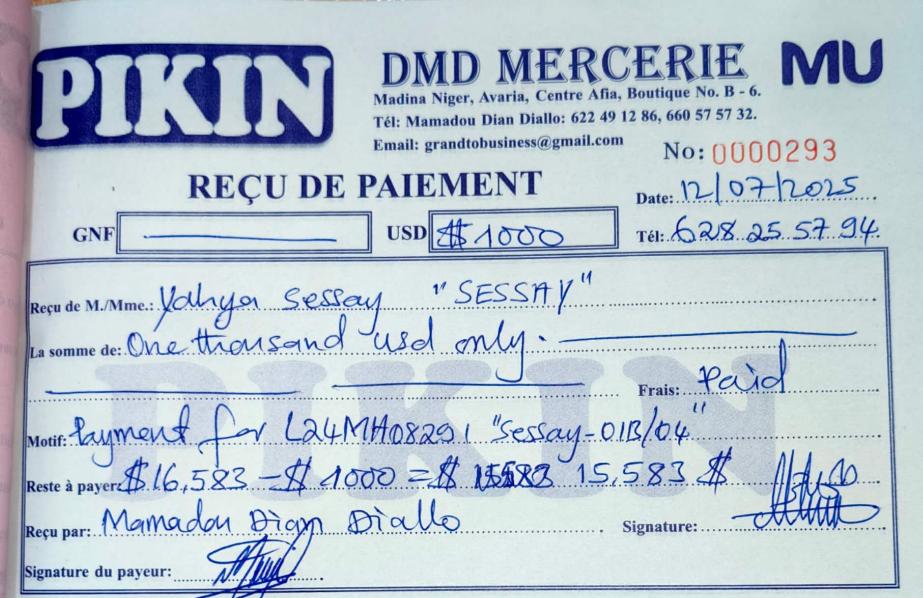 PIKIN
DMD MERCERIE
MU
Madina Niger, Avaria, Centre Afia, Boutique No. B - 6.
Tél: Mamadou Dian Diallo: 622 49 12 86, 660 57 57 32.
Email: grandtobusiness@gmail.com
No: 0000293
REÇU DE PAIEMENT
Date: 12/07/2025
GNF
USD $ 1000
Tél: 628 25 57 94
Reçu de M./Mme.: Yahya Sessay "SESSAY"
La somme de: One thousand usd only.
Frais: Paid
Motif: Payment for L24MH08291 "Sessay-01B/04"
Reste à payer: $16,583 - $ 1000 = $ 15,583 $
Reçu par: Mamadou Dian Diallo
Signature:
Signature du payeur:
PIKIN